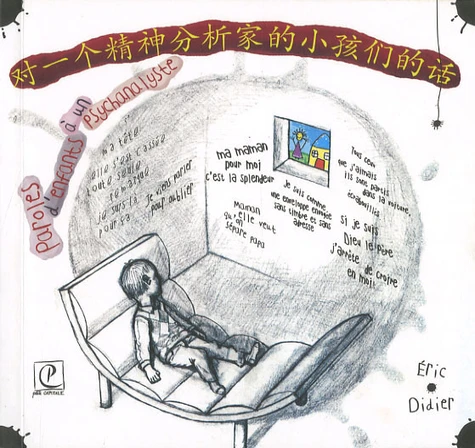 对一个精神分析家的小孩们的话
paroles
d'enfants à un
psychanalyste
ma tête
elle s'est cassée
toute seule
je suis là
pour ça
je viens parler
pour oublier
ma maman
pour moi
c'est la splendeur
Maman
qu'elle veut
on
sépare papa
je suis comme
une enveloppe
sans timbre et sans
adresse
Tous ceux
que j'aimais
ils sont partis
dans la voiture,
écrabouillés
si je suis
Dieu le Père
j'arrête de croire
en moi!
Éric
Didier
P
petite CAPITALE